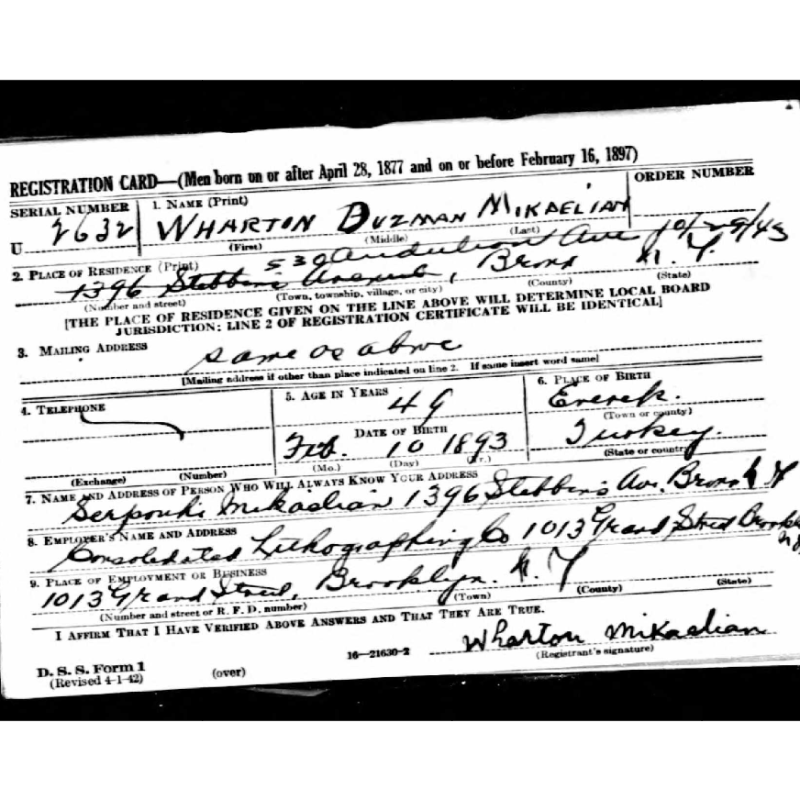 REGISTRATION CARD—(Men born on or after April 28, 1877 and on or before February 16, 1897)
SERIAL NUMBER 1. NAME (Print) ORDER NUMBER
U 2632 WHARTON DUZMAN MIKAELIAN
(First) (Middle) (Last)
530 Audubon Ave 10/29/43
2. PLACE OF RESIDENCE (Print)
1396 Stebbins Avenue, Bronx N. Y.
(Number and street) (Town, township, village, or city) (County) (State)
[THE PLACE OF RESIDENCE GIVEN ON THE LINE ABOVE WILL DETERMINE LOCAL BOARD
JURISDICTION; LINE 2 OF REGISTRATION CERTIFICATE WILL BE IDENTICAL]
3. MAILING ADDRESS
same as above
[Mailing address if other than place indicated on line 2. If same insert word same]
4. TELEPHONE 5. AGE IN YEARS 6. PLACE OF BIRTH
49 Everek.
(Town or county)
DATE OF BIRTH
Feb. 10 1893 Turkey.
(Exchange) (Number) (Mo.) (Day) (Yr.) (State or country)
7. NAME AND ADDRESS OF PERSON WHO WILL ALWAYS KNOW YOUR ADDRESS
Serpouhi Mikaelian 1396 Stebbins Av. Bronx N Y
8. EMPLOYER'S NAME AND ADDRESS
Consolidated Lithographing Co 1013 Grand Street Brooklyn N.Y
9. PLACE OF EMPLOYMENT OR BUSINESS
1013 Grand Street, Brooklyn. N. Y
(Number and street or R. F. D. number) (Town) (County) (State)
I AFFIRM THAT I HAVE VERIFIED ABOVE ANSWERS AND THAT THEY ARE TRUE.
Wharton Mikaelian
D. S. S. Form 1 16—21630-2 (Registrant's signature)
(Revised 4-1-42) (over)